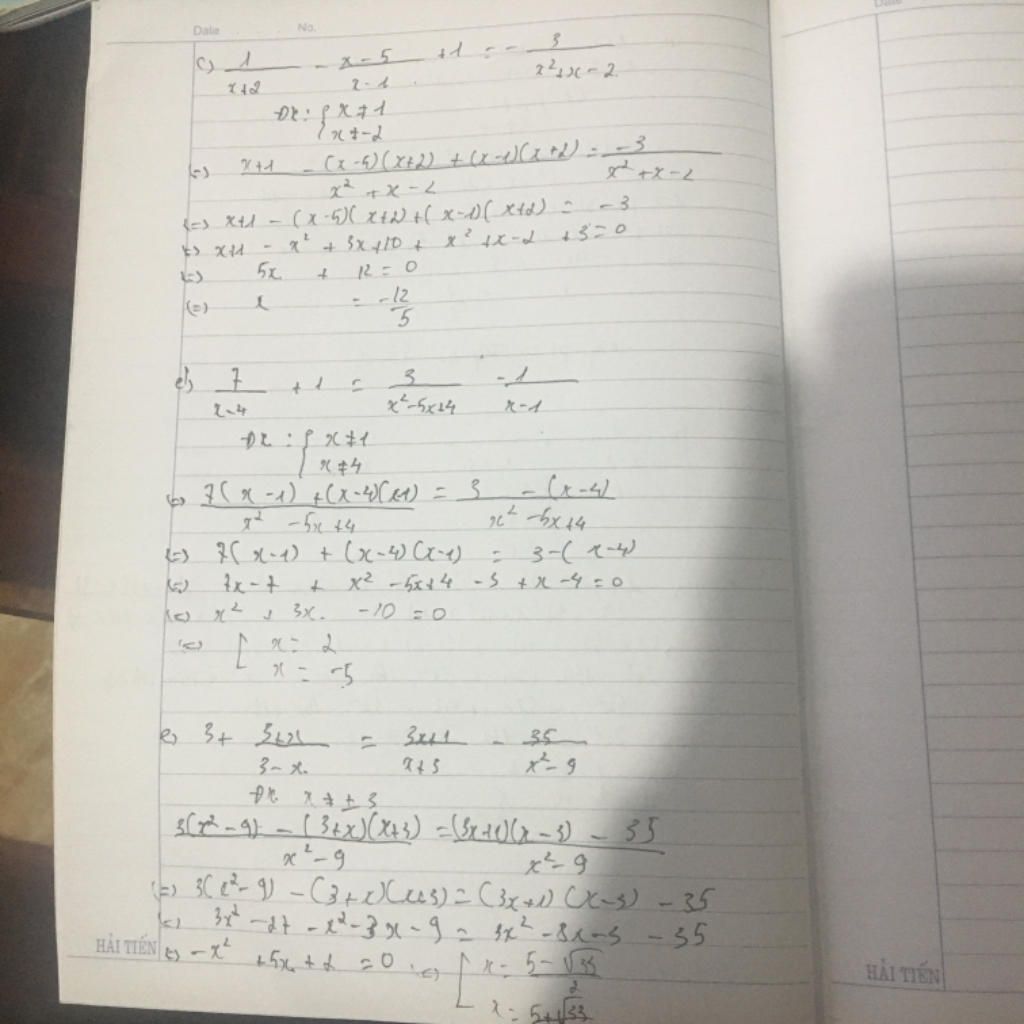 Date No.
c) 1/(x+2) - (x-5)/(x-1) + 1 = - 3/(x²+x-2)
ĐK: { x ≠ 1
x ≠ -2
(=) (x+1 - (x-5)(x+2) + (x-1)(x+2))/(x²+x-2) = -3/(x²+x-2)
(=) x+1 - (x-5)(x+2) + (x-1)(x+2) = -3
(=) x+1 - x² + 3x+10 + x²+x-2 +3=0
(=) 5x + 12 = 0
(=) x = -12/5
d) 7/(x-4) + 1 = 3/(x²-5x+4) - 1/(x-1)
ĐK : { x ≠ 1
x ≠ 4
(=) (7(x-1) + (x-4)(x-1))/(x² -5x+4) = (3 - (x-4))/(x²-5x+4)
(=) 7(x-1) + (x-4)(x-1) = 3-(x-4)
(=) 7x-7 + x² -5x+4 -3 +x -4=0
(=) x² + 3x -10 =0
(=) [ x = 2
x = -5
e) 3+ (3+x)/(3-x) = (3x+1)/(x+3) - 35/(x²-9)
ĐK x ≠ ± 3
(3(x²-9) - (3+x)(x+3))/(x²-9) = ((3x+1)(x-3) - 35)/(x²-9)
(=) 3(x²-9) - (3+x)(x+3) = (3x+1)(x-3) - 35
(=) 3x² -27 - x²-3x-9 = 3x² -8x-3 -35
(=) -x² +5x+2 =0 (=) [ x = (5-√33)/2
x = 5+√33
HẢI TIẾN
Date
HẢI TIẾN